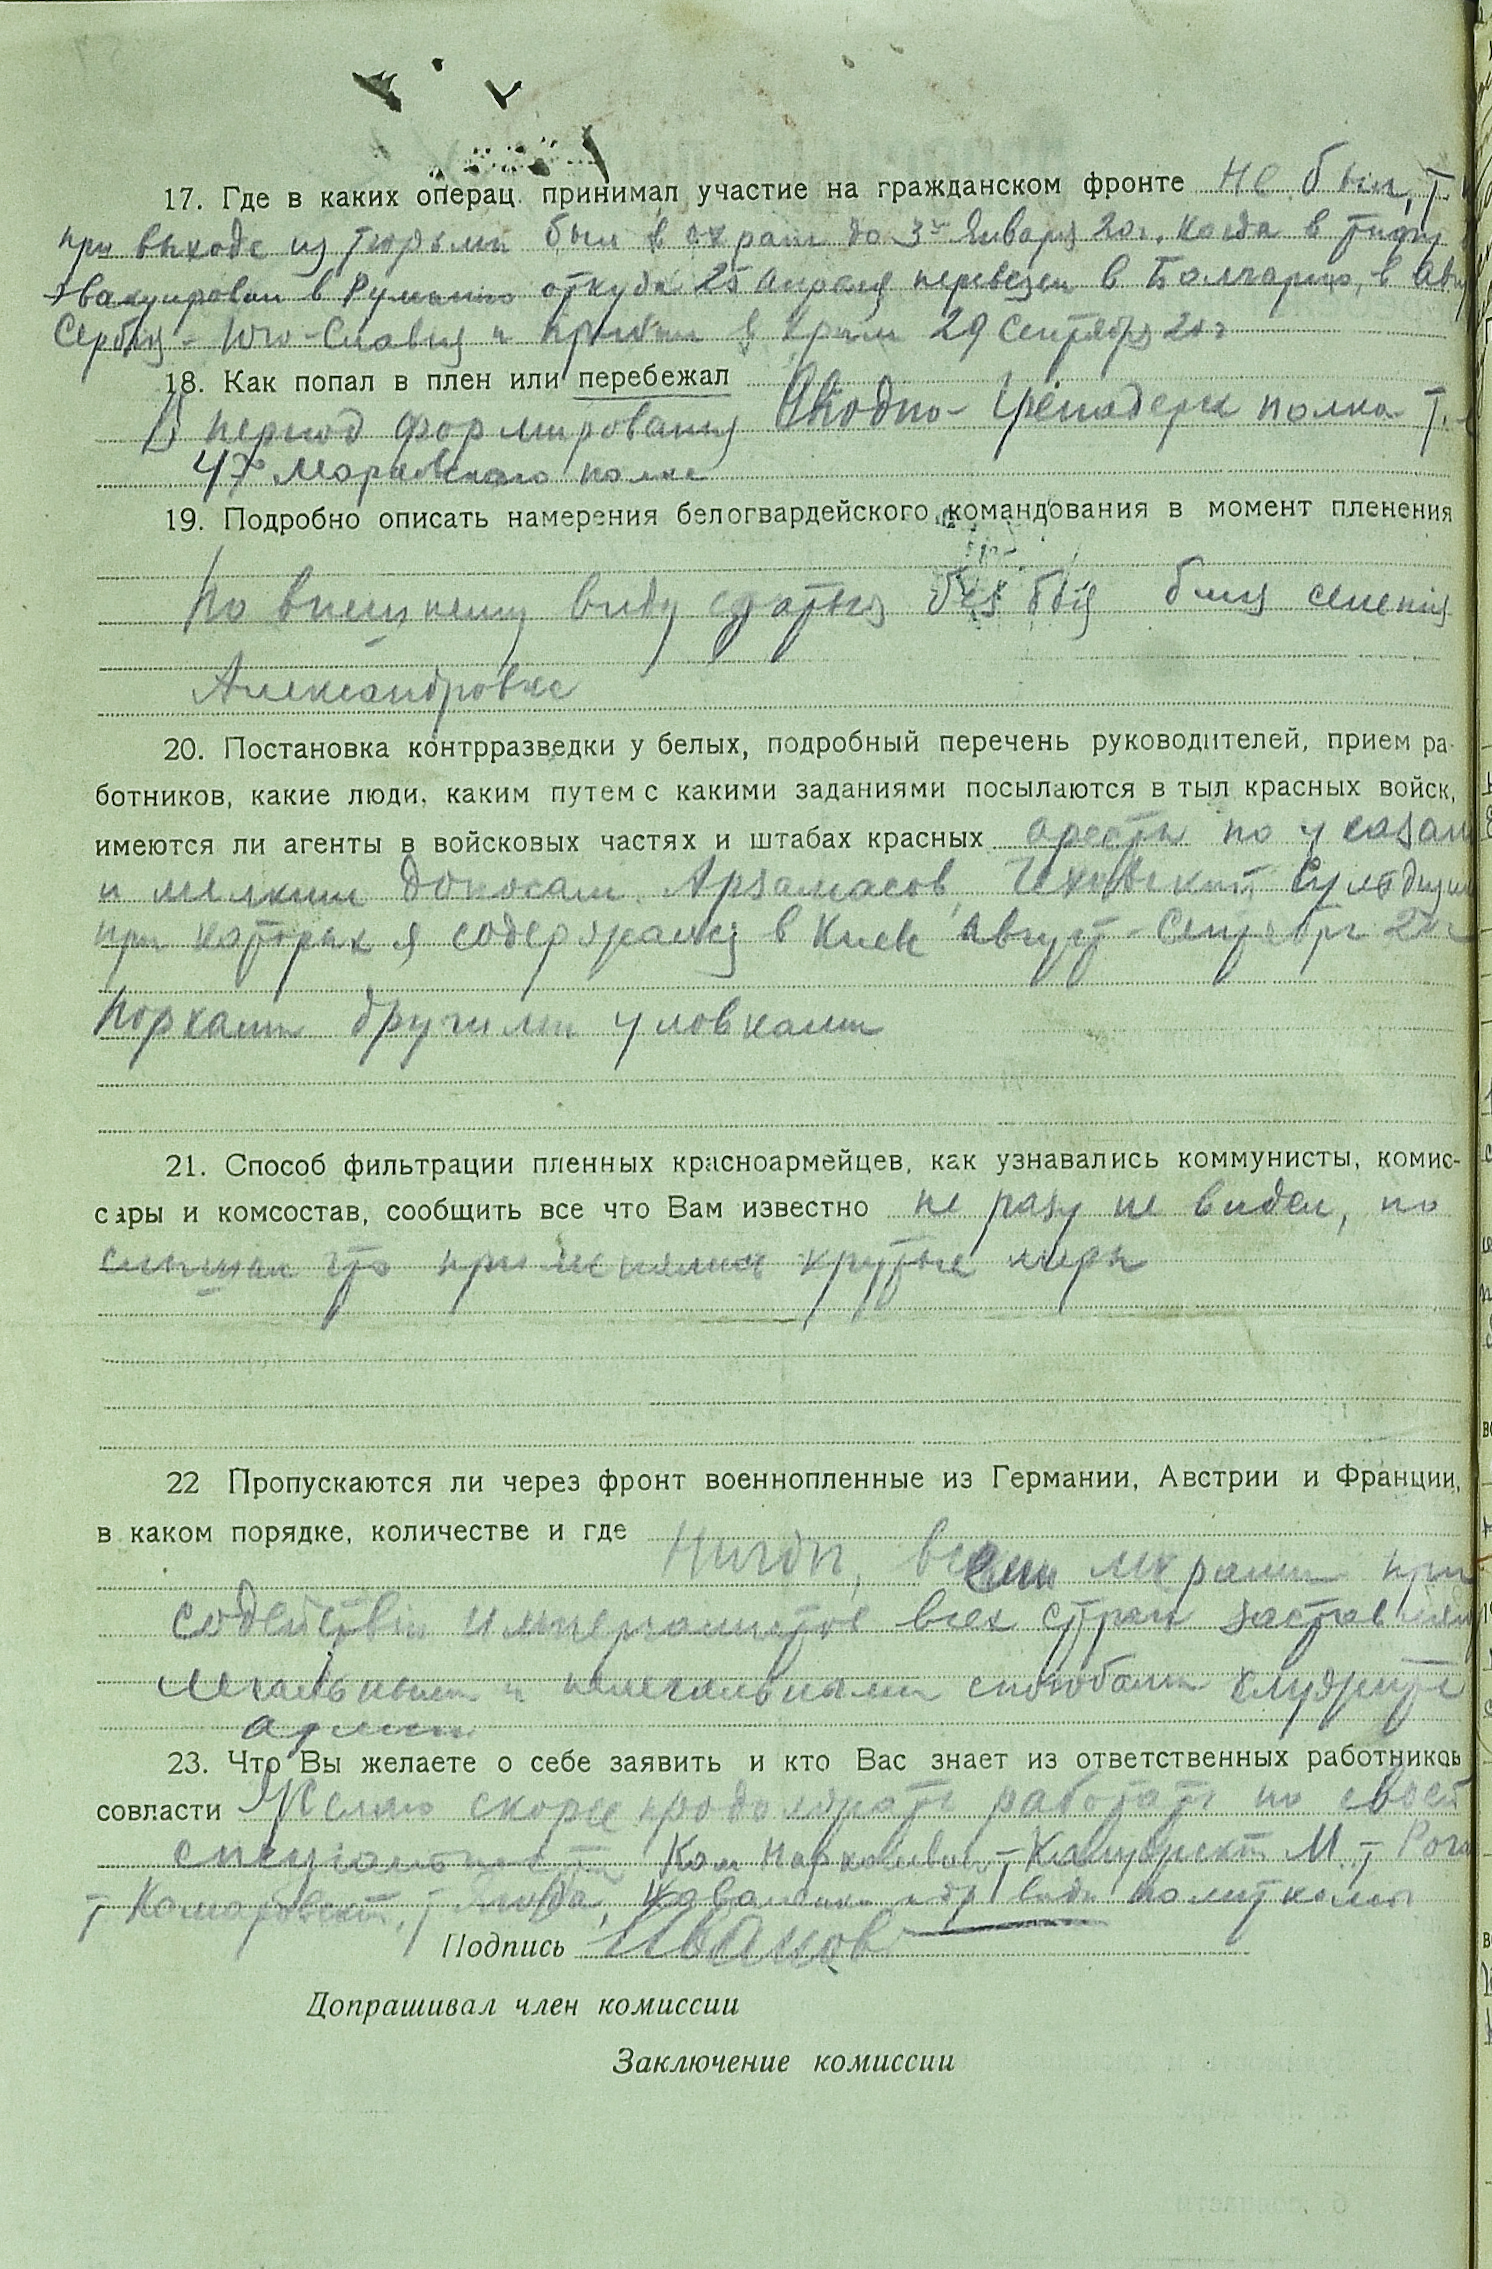 17. Где в каких операц. принимал участие на гражданском фронте не был, т.
при выходе из тюрьмы был в охране до 3го Января 20г. когда в тифу
эвакуирован в Румынию откуда 25 апреля перевезен в Болгарию, в Авг
Сербия - Юго-Славия и прибыл в Крым 29 Сентября 20 г
18. Как попал в плен или перебежал
В период формирования Сводно-Гренадерск полка т.
47го Марковского полка
19. Подробно описать намерения белогвардейского командования в момент пленения
по внешнему виду сдаться без боя близ селения
Александровка
20. Постановка контрразведки у белых, подробный перечень руководителей, прием ра-
ботников, какие люди, каким путем с какими заданиями посылаются в тыл красных войск,
имеются ли агенты в войсковых частях и штабах красных аресты по указан
и мелким доносам. Арзамасов, Чеховский
при которых я содержался в Киеве Август - Сентябрь
порками другими уловками
21. Способ фильтрации пленных красноармейцев, как узнавались коммунисты, комис-
сары и комсостав, сообщить все что Вам известно не разу не видел, но
слышал что применялись крутые меры
22 Пропускаются ли через фронт военнопленные из Германии, Австрии и Франции,
в каком порядке, количестве и где Нигде, всеми мерами при
содействии империалистов всех стран заставляли
легальными и нелегальными способами служить
армии
23. Что Вы желаете о себе заявить и кто Вас знает из ответственных работников
совласти Желаю скорее продолжать работать по своей
специальности
т Комаровский, политкомы
Подпись Иванов
Допрашивал член комиссии
Заключение комиссии